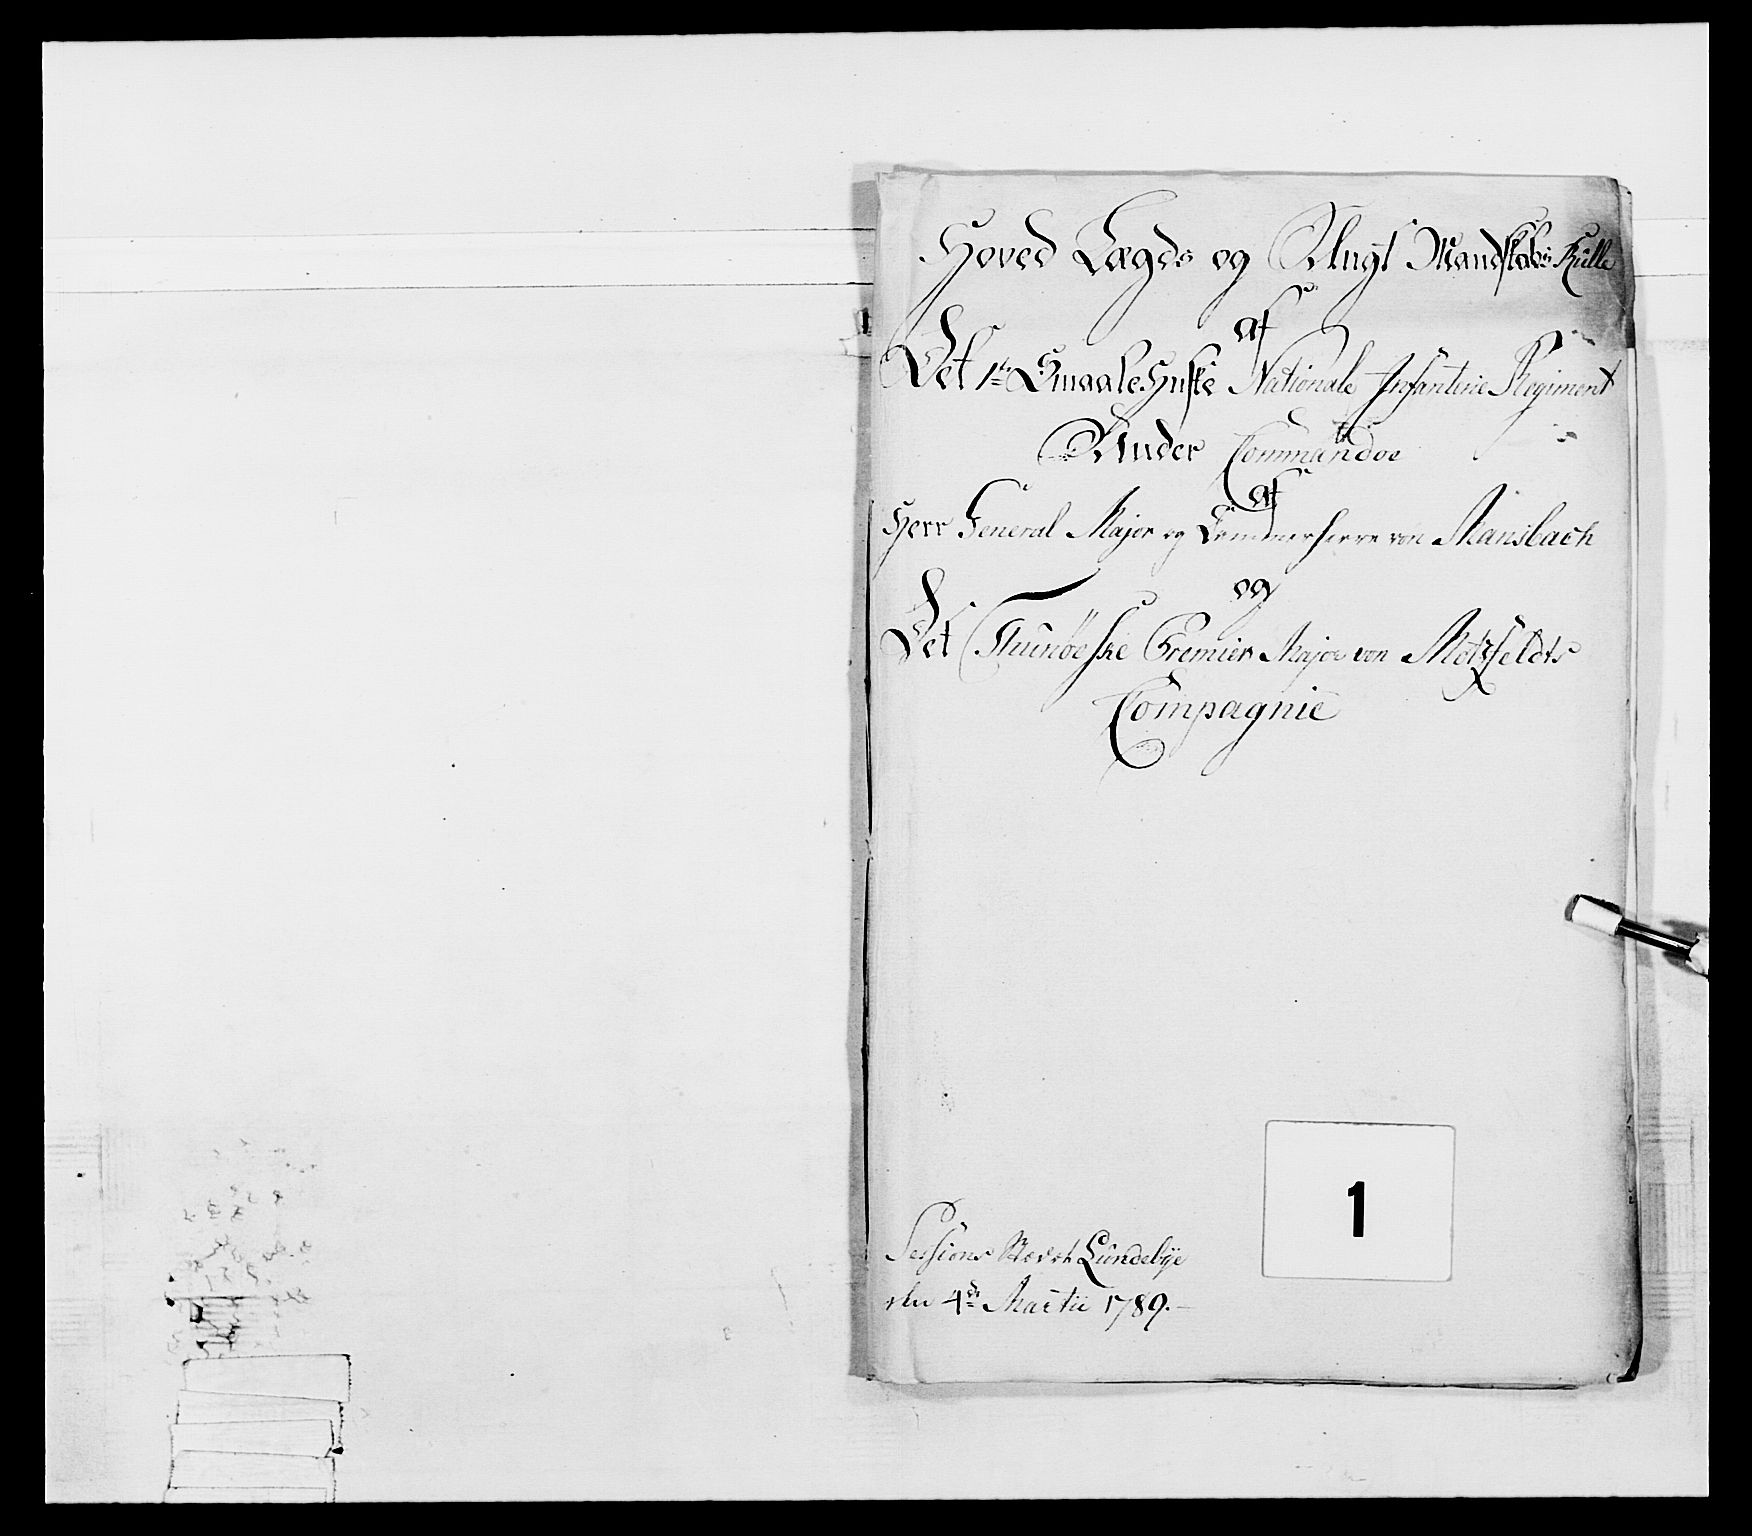 Hoved Lægds og Ungt Mandskabs Rulle
af
Det 1te SmaaleHnske Nationale Infanterie Regiment
Under Commandoe
af
Herr General Major og Kammerherre von Mansbach
og
Det Thunöeske Premier Major von Motzfeldts
Compagnie
1
Sessions Stædet Lundebÿe
den 4de Martii 1789.